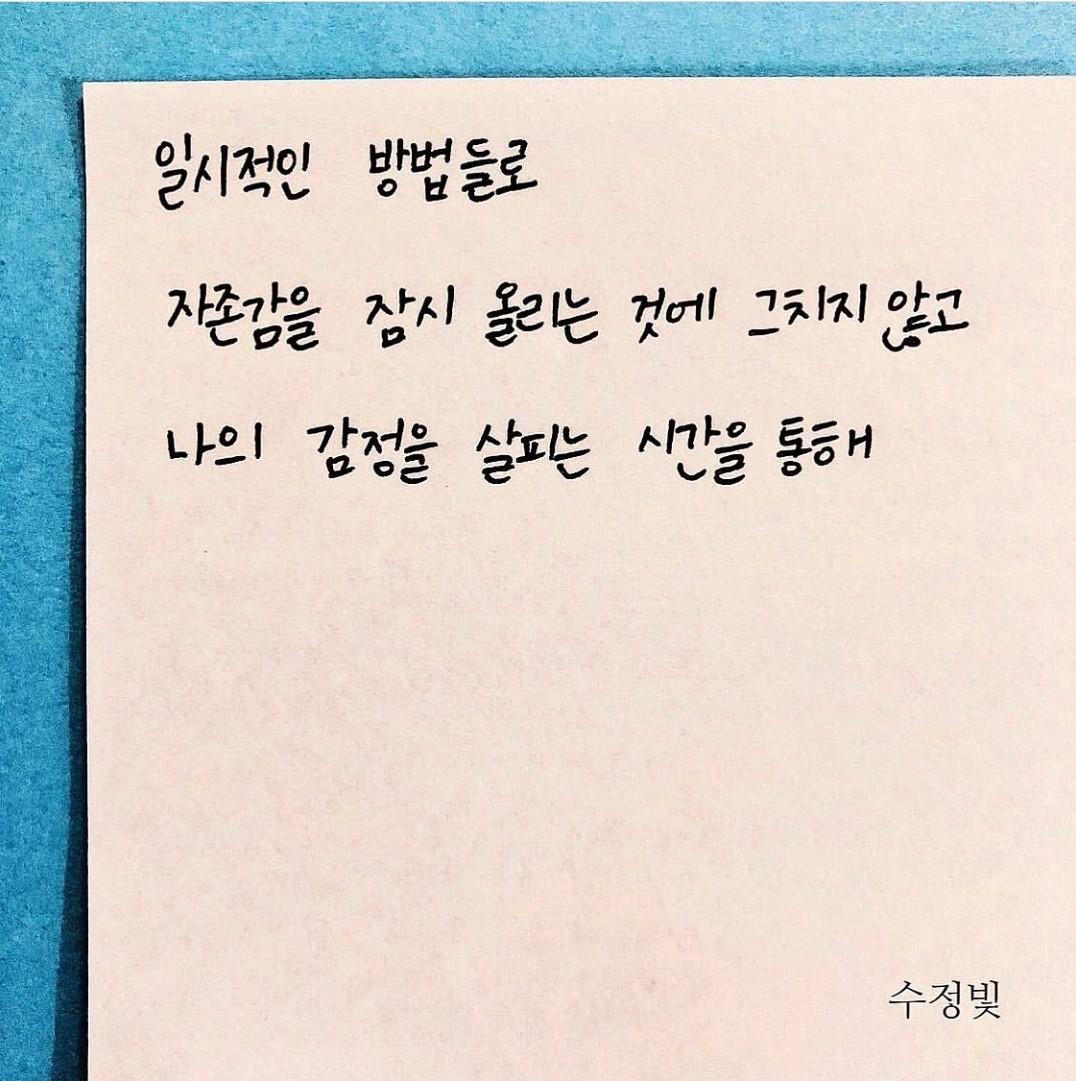 일시적인 방법들로
자존감을 잠시 올리는 것에 그치지 않고
나의 감정을 살피는 시간을 통해
수정빛